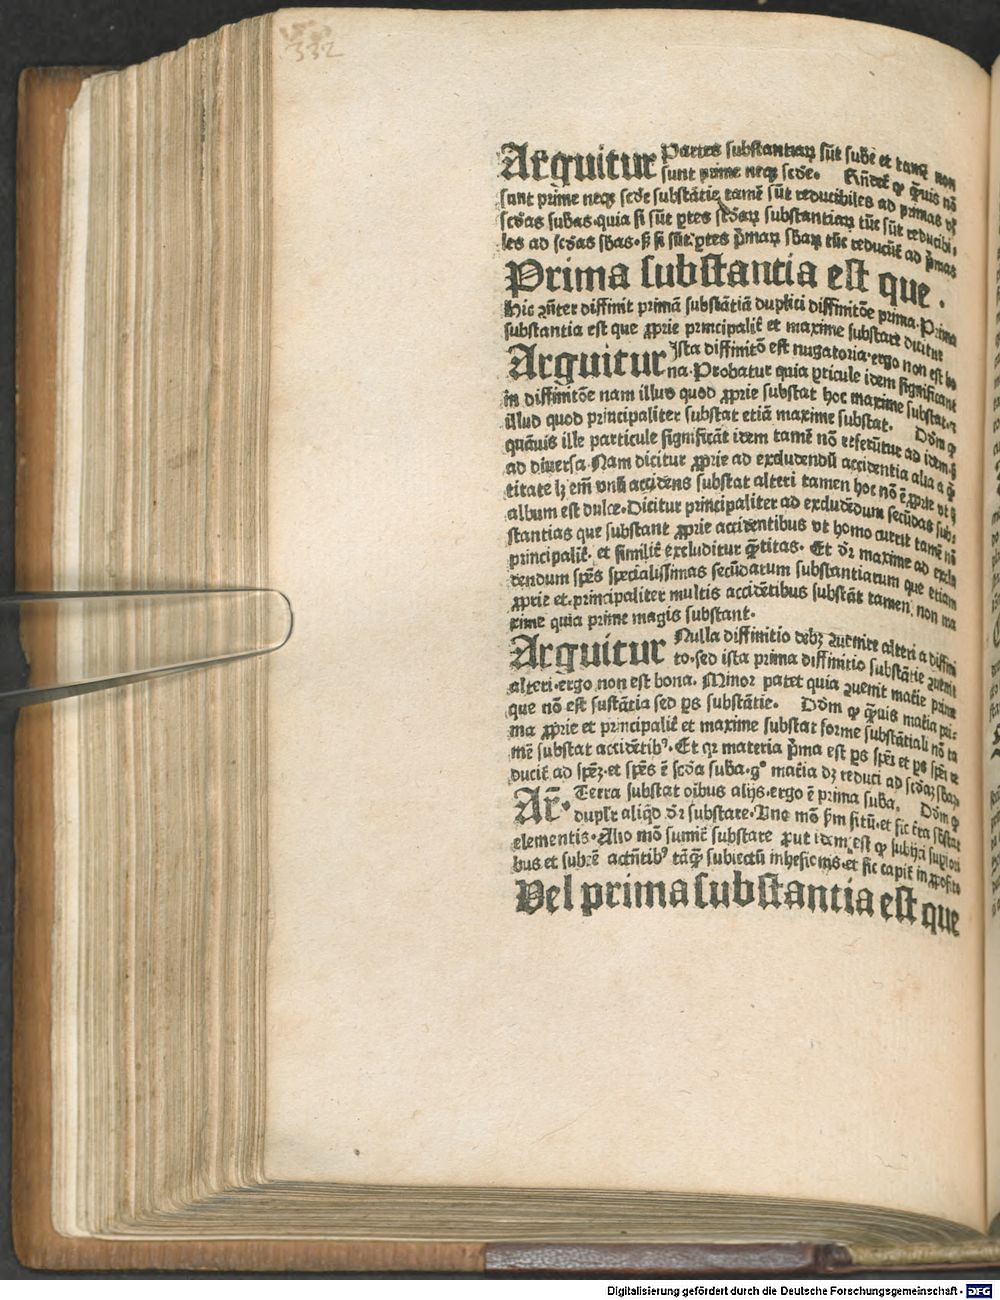 332
Arguitur Partes substantiaꝝ sūt sube et tamē non
sunt prime neqꝫ scde. Rn̄det ꝙ q̄uis nō
sunt prime neqꝫ scde substātie tamē sūt reducibiles ad primas vl
scdas subas. quia si sūt ꝑtes scdaꝝ substantiaꝝ tūc sūt reducibi-
les ad scdas sbas. ß si sūt ꝑtes p̄maꝝ sbaꝝ tūc reducūt ad p̄mas
Prima substantia est que.
Hic diffinit primā substātiā duplici diffinitōe prima. Prima
substantia est que ꝓprie principalit̄ et maxime substare dicitur
Arguitur Ista diffinitō est nugatoria. ergo non est bo
na. Probatur quia ꝑticule idem significant
in diffinitōe nam illud quod ꝓprie substat hoc maxime substat. ⁊
illud quod principaliter substat etiā maxime substat. Dōm ꝙ
quāuis ille particule significāt idem tamē nō referūtur ad idem. ß
ad diuersa. Nam dicitur ꝓprie ad excludendū accidentia alia a q̄
titate lꝫ em̄ vnū accidens substat alteri tamen hoc nō ē ꝓprie vt ß
album est dulce. Dicitur principaliter ad excludēdum secūdas sub-
stantias que substant ꝓprie accidentibus vt homo currit tamē nō
principalit̄. et similit̄ excluditur q̄titas. Et dr̄ maxime ad exclu
dendum spēs specialissimas secūdarum substantiarum que etiam
ꝓprie et principaliter multis accidētibus substāt tamen non ma
xime quia prime magis substant.
Arguitur Nulla diffinitio debꝫ ꝯuenire alteri a diffini
to. sed ista prima diffinitio substātie ꝯuenit
alteri. ergo non est bona. Minor patet quia ꝯuenit mat̄ie prime
que nō est sustātia sed ꝑs substātie. Dōm ꝙ q̄uis mat̄ia pri-
ma ꝓprie et principalit̄ et maxime substat forme substātiali nō ta
mē substat accidētibꝰ. Et qꝛ materia p̄ma est ꝑs spēi et ꝑs spēi re
ducit̄ ad spēꝫ. et spēs ē scda suba. gº mat̄ia dꝫ reduci ad scdaꝫ sbaꝫ
Ar̄. Terra substat oībus alijs. ergo ē prima suba. Dōm ꝙ
duplr̄ aliqd dr̄ substare. Vno mō ßm sitū. et sic t̄ra sbstat
elementis. Alio mō sumit̄ substare ꝓut idem est ꝙ subijci suꝑiori
bus et subēē actn̄tibꝰ tāq̄ subiectū inhesionis. et sic capit̄ in ꝓposito
Vel prima substantia est que
Digitalisierung gefördert durch die Deutsche Forschungsgemeinschaft - DFG